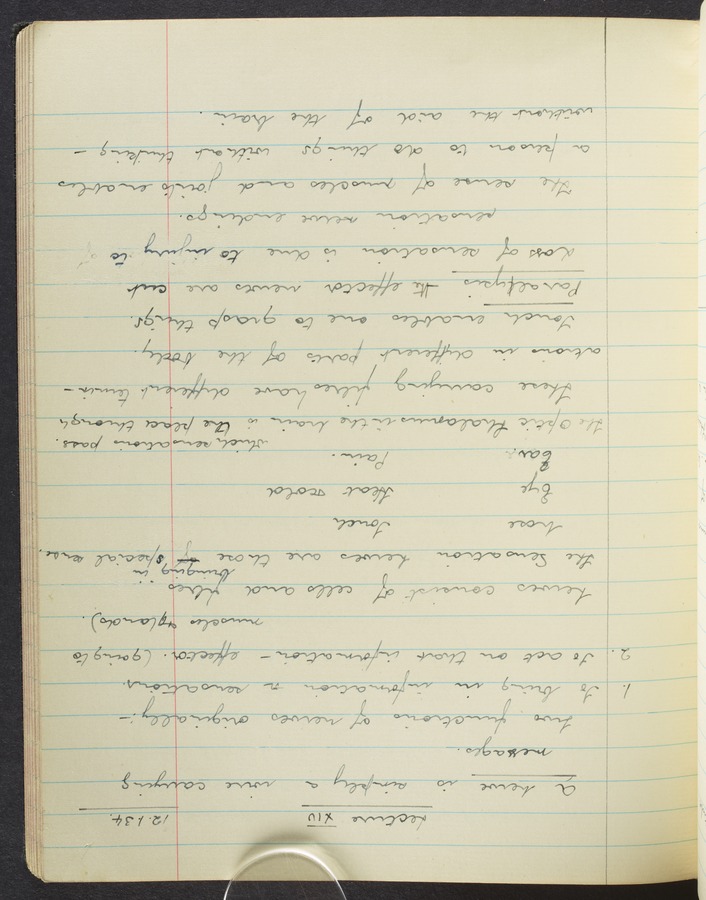 Lecture XIV 12.1.34.
A nerve is simply a wire carrying
messages.
Two functions of nerves originally:-
1. To bring in information & sensations.
2. To act on that information - effector. (going to
muscles & glands).
Nerves consist of cells and fibres
bringing in
The Sensation nerves are those of special sense.
Nose Touch
Eye Heat & cold
Ear. Pain.
The Optic Thalamus in the brain is the place through
which sensations pass.
These carrying fibres have different termin-
ations in different parts of the body.
Touch enables one to grasp things.
Paralysis The effector nerves are cut
Loss of sensation is due to injury to
sensation nerve endings.
The sense of muscles and joints enables
a person to do things without thinking -
without the aid of the brain.